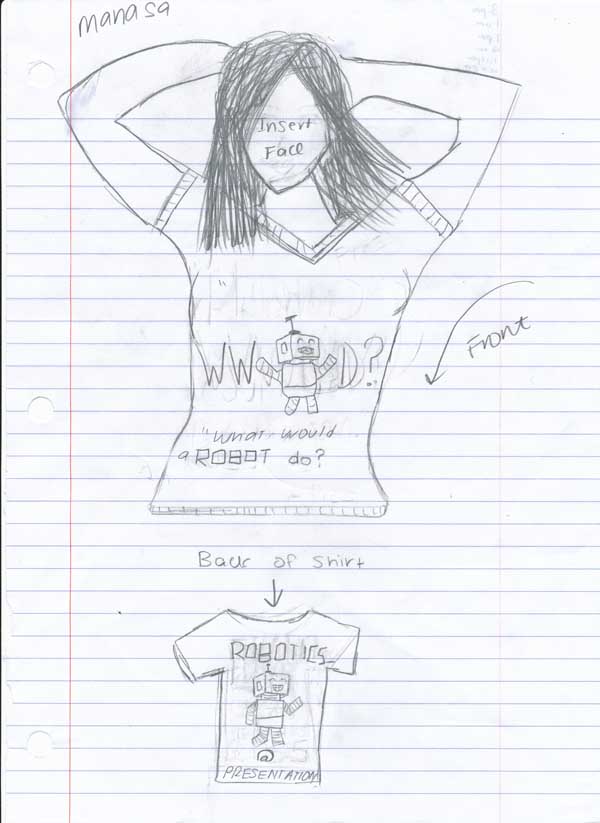 Manasa
Insert
Face
WW D?
Front
"What would
a ROBOT do?
Back of shirt
ROBOTICS
@
PRESENTATION